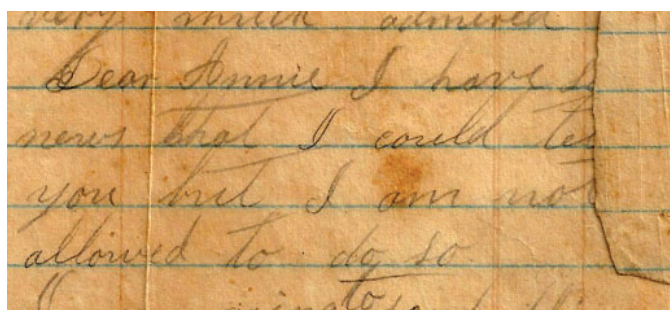 very much admired
Dear Annie I have
news that I could
you but I am not
allowed to do so
to